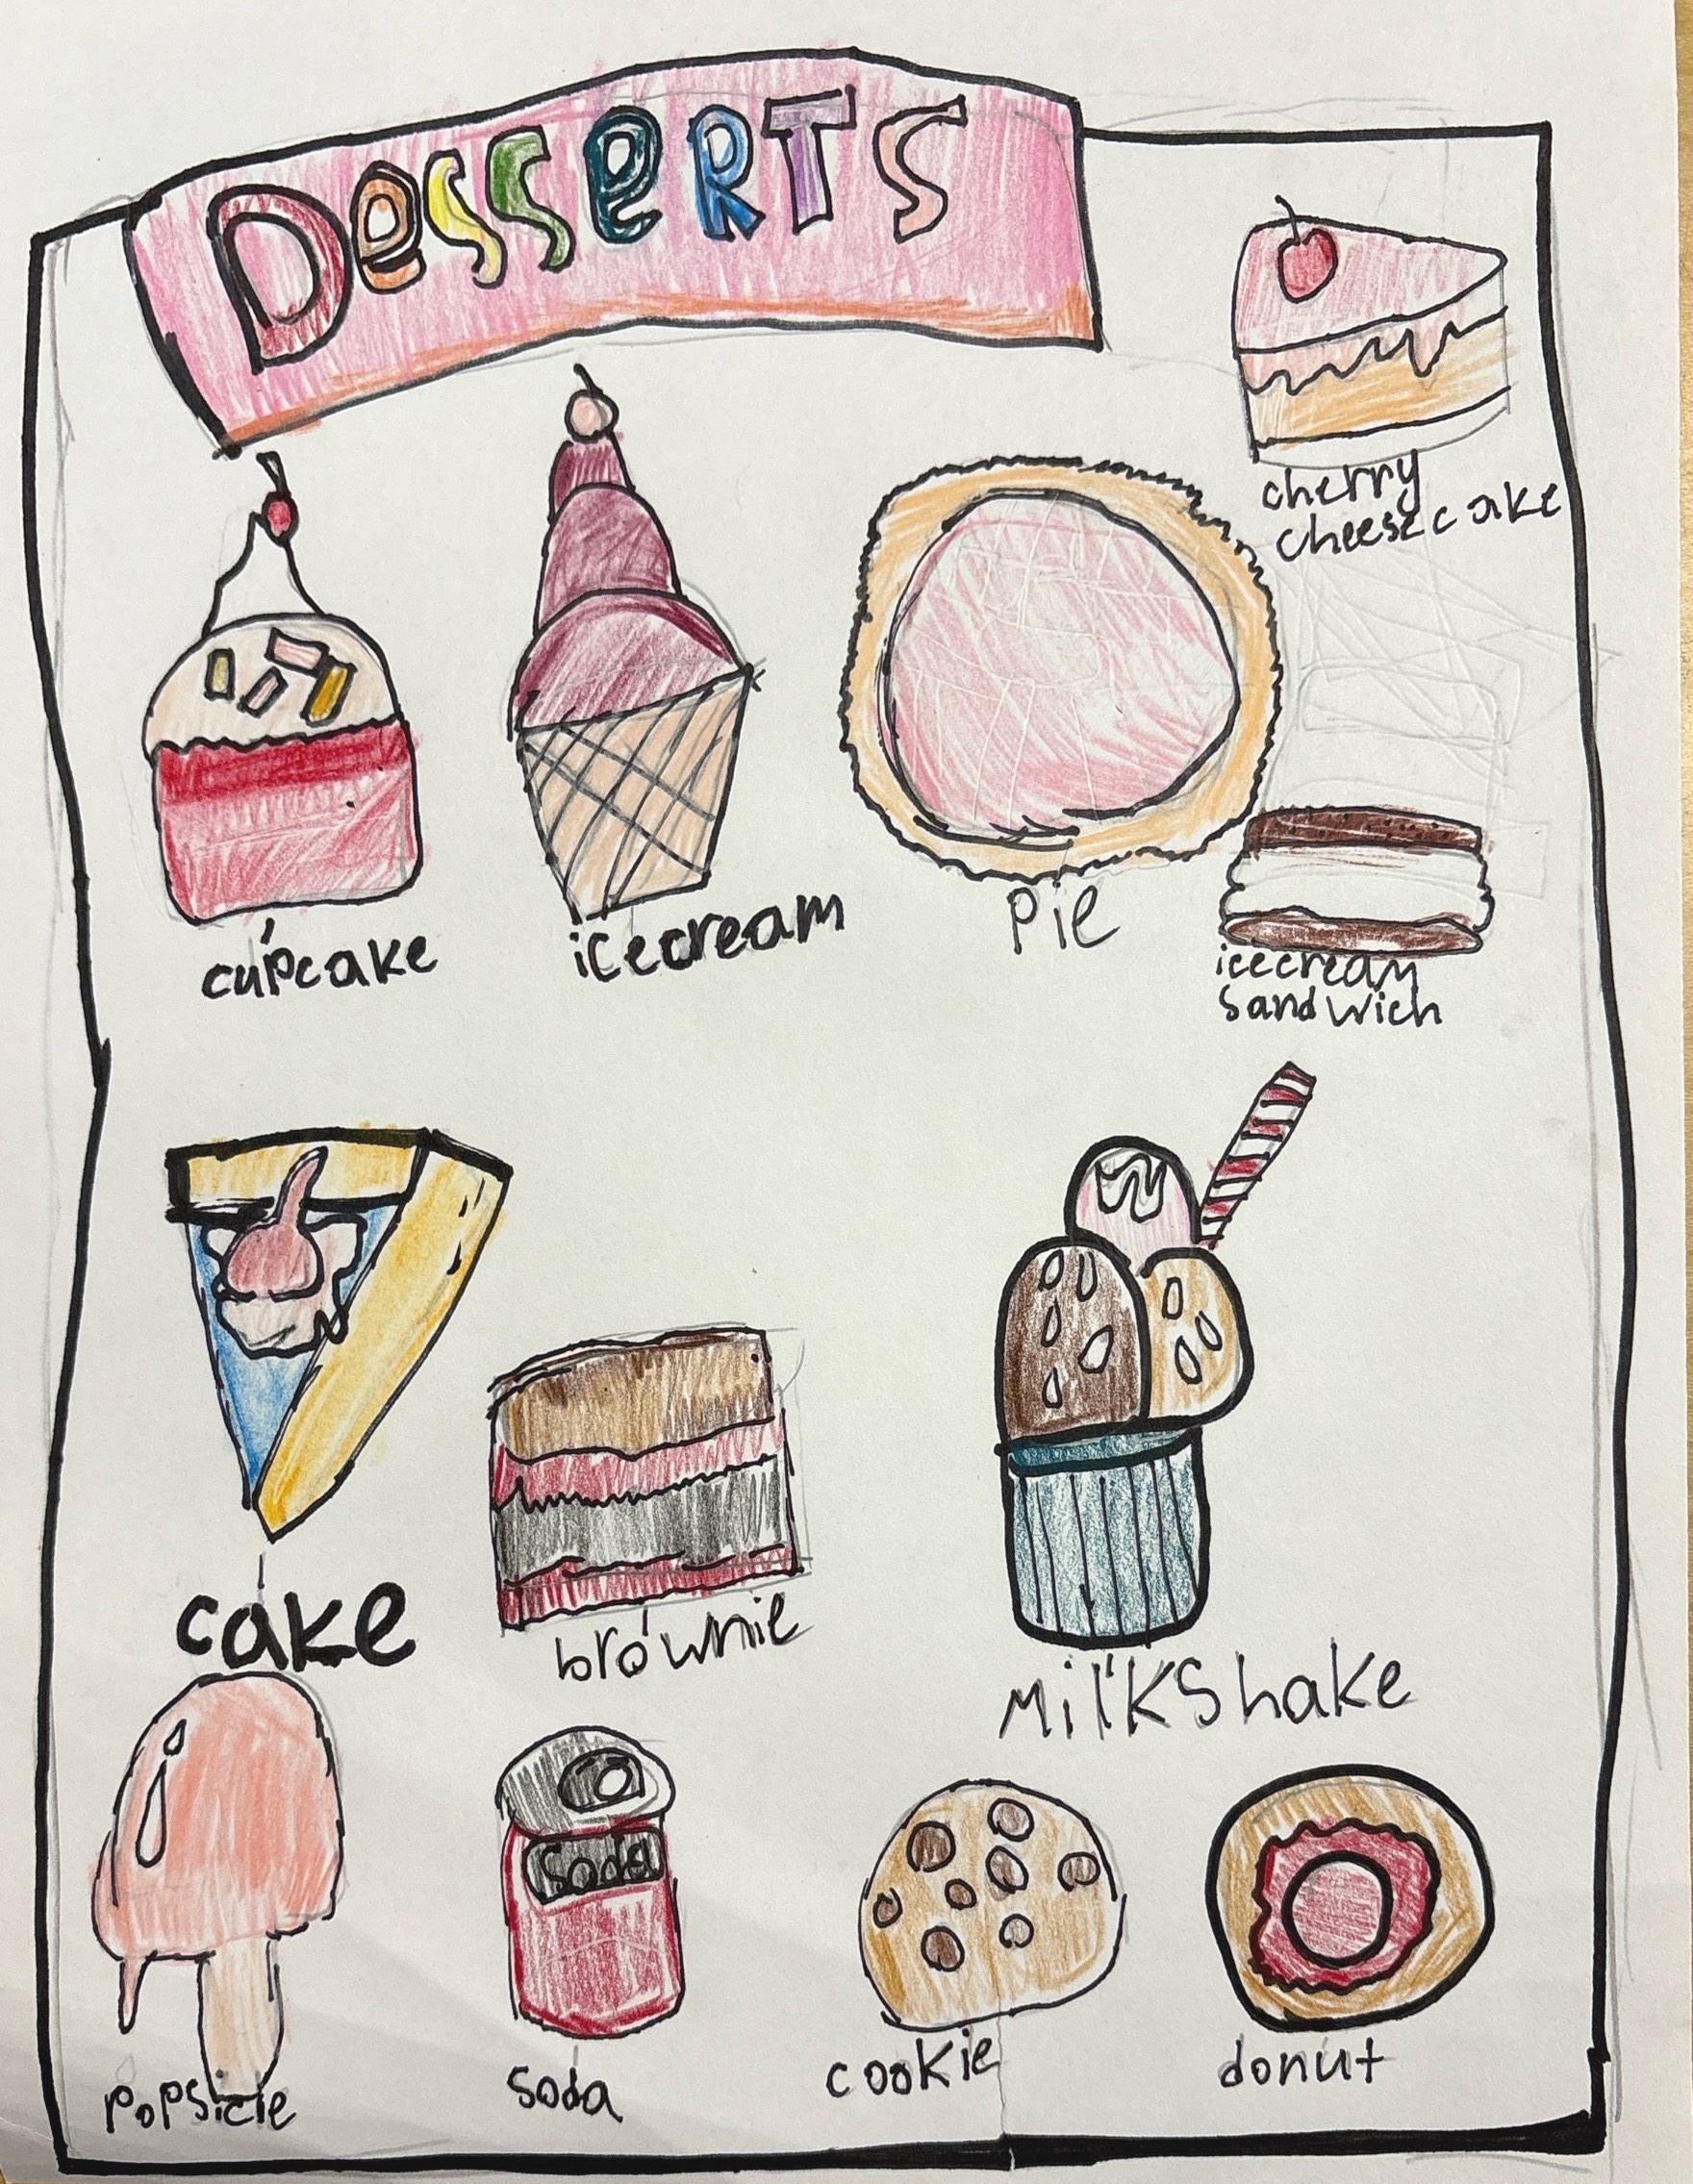 Desserts
cherry
cheesecake
cupcake
icecream
Pie
icecream
sandwich
cake
brownie
Milkshake
Soda
Popsicle
Soda
cookie
donut